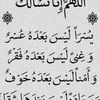 اللهم إنا نسألك
يُسْراً لَيْسَ بَعْدَهُ عُسْرٌ
وَغِنىً لَيْسَ بَعْدَهُ فَقْرٌ
وَأَمْناً لَيْسَ بَعْدَهُ خَوْفٌ